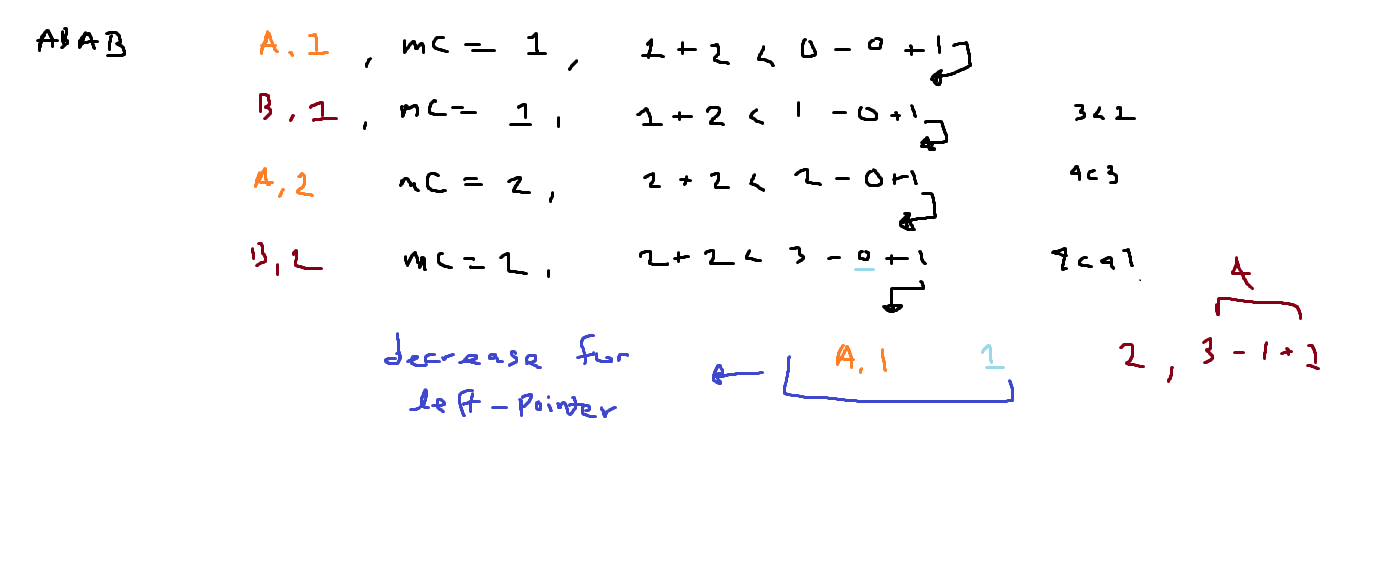 ABAB A, 1 , mC = 1 , 1 + 2 < 0 - 0 + 1
B, 1 , mC = 1 , 1 + 2 < 1 - 0 + 1 3 < 2
A, 2 mC = 2 , 2 + 2 < 2 - 0 + 1 4 < 3
B, 2 mC = 2 , 2 + 2 < 3 - 0 + 1 4 < 4 ?
4
decrease for A, 1 1 2 , 3 - 1 + 1
left - pointer